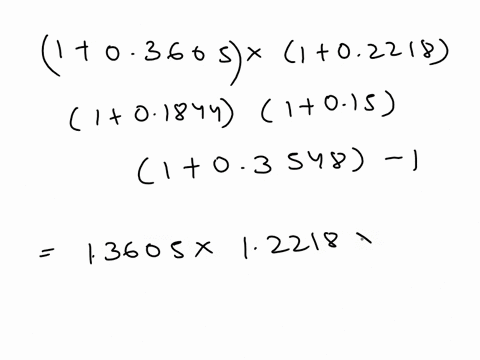 (1 + 0.3605) × (1 + 0.2218)
(1 + 0.1844) (1 + 0.15)
(1 + 0.3548) - 1
= 1.3605 × 1.2218 ×